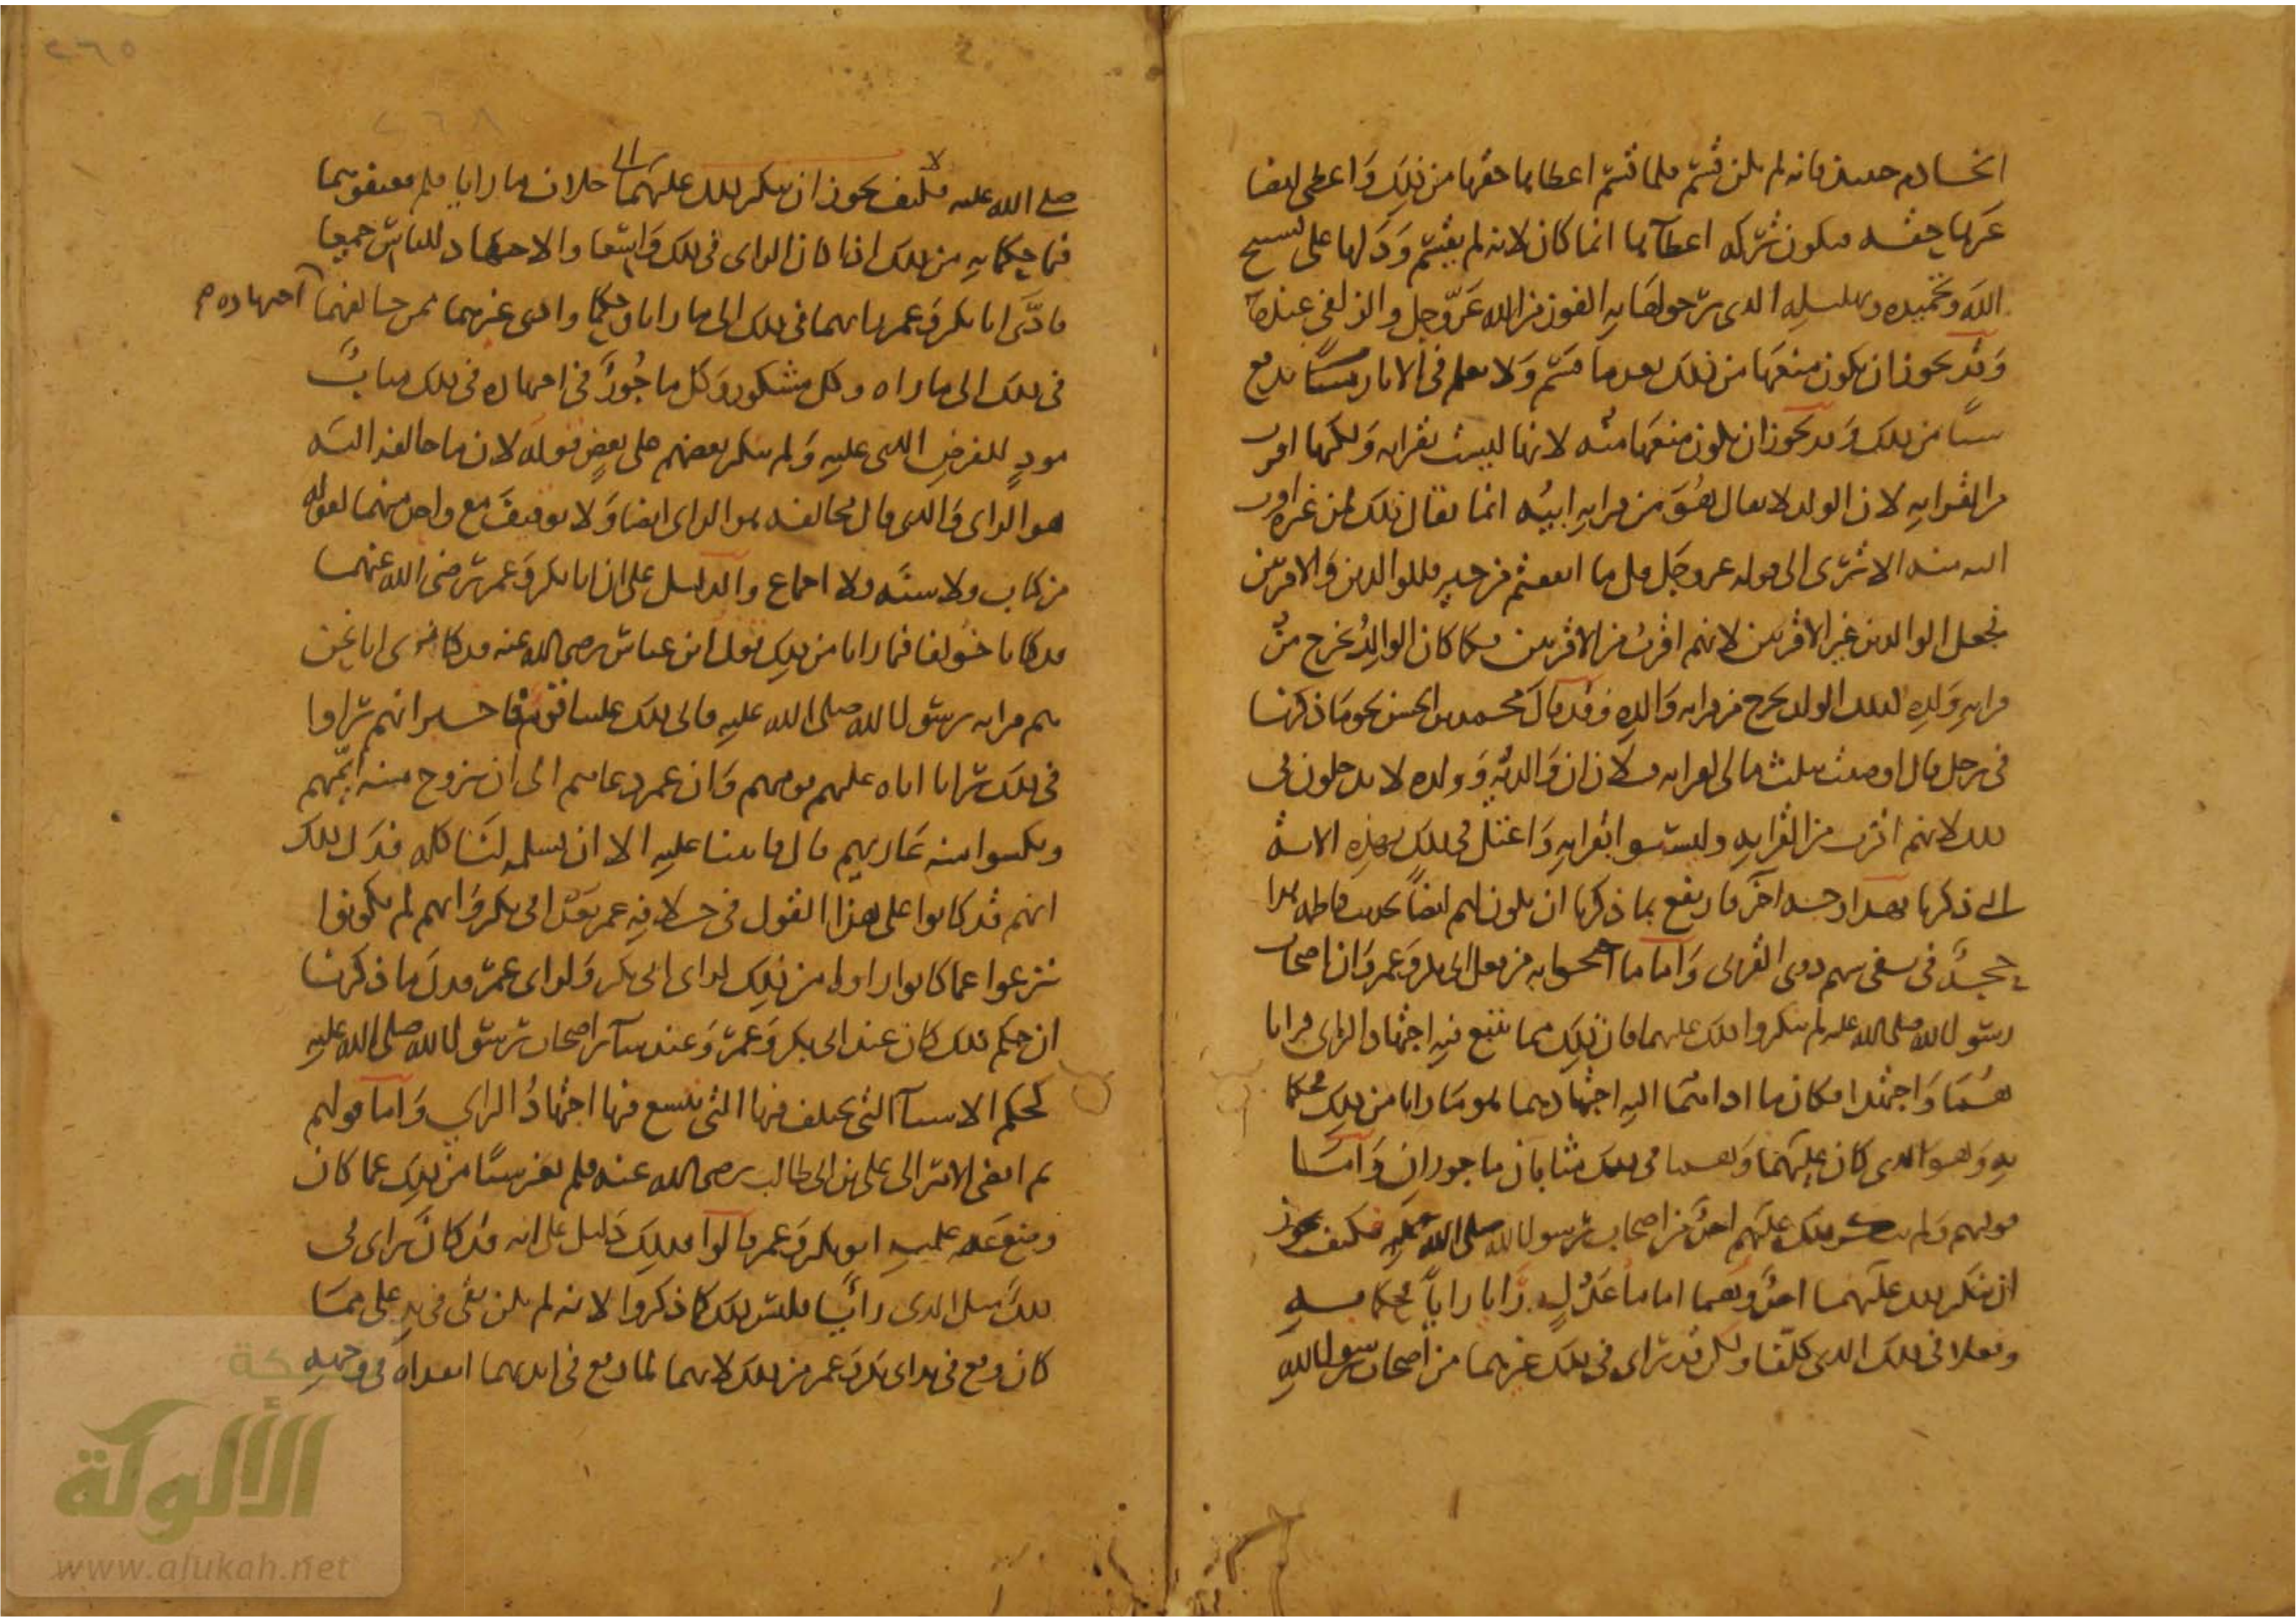 الخادم حينئذ فانه لم يكن قسم فلما قسم اعطاها حقها من ذلك واعطى ايضا
غيرها حقه فيكون تركه اعطآها انما كان لانه لم يقسم ودلها على تسبيح
الله وتحميده وتهليله الذي يرجو لها به الفوز من الله عز وجل والزلفى عنده
وقد يجوز ان يكون منعها من ذلك بعدما قسم ولا نعلم في الاثار شيئا يدفع
شيئا من ذلك وقد يجوز ان يكون منعها منه لانها ليست بقرابه ولكنها اقرب
من القرابه لان الولد لا يقال هو من قرابه ابيه انما يقال ذلك لمن غيره اقرب
اليه منه الا ترى الى قوله عز وجل قل ما انفقتم من خير فللوالدين والاقربين
فجعل الوالدين غير الاقربين لانهم اقرب من الاقربين فكما كان الوالد يخرج من
قرابه ولده فكذلك الولد يخرج من قرابه والده وقد قال محمد بن الحسن نحو ما ذكرنا
في رجل قال اوصيت بثلث مالي لقرابه فلان ان والديه وولده لا يدخلون في
ذلك لانهم اقرب من القرابه وليسوا بقرابه واعتل في ذلك بهذه الايه
التي ذكرنا فهذا وجه آخر فارتفع بما ذكرنا ان يكون لهم ايضا بحديث فاطمه هذا
حجه في نفي سهم ذوي القربى واما ما احتجوا به من فعل ابي بكر وعمر وان اصحاب
رسول الله صلى الله عليه لم ينكروا ذلك عليهما فان ذلك مما يتسع فيه اجتهاد الراى فرايا
هما واجتهدا فكان ما اداهما اليه اجتهادهما هو ما رايا من ذلك فحكما
به وهو الذي كان عليهما وهما في ذلك مثابان ماجوران واما
قولهم ولم ينكر ذلك عليهم احد من اصحاب رسول الله صلى الله عليه فكيف يجوز
ان ينكر ذلك عليهما احد وهما اماما عدل رايا رايا فحكما به
وفعلا في ذلك الذي كلفا ولكن قد راى في ذلك غيرهما من اصحاب رسول الله
صلى الله عليه فكيف يجوز ان ينكر ذلك عليهما خلاف ما رايا فلم يعنفوهما
فيما حكما به من ذلك اذا كان الراى في ذلك واسعا والاجتهاد للناس جميعا
فادى ابا بكر وعمر رايهما في ذلك الى ما رايا وحكما وادى غيرهما ممن خالفهما اجتهاده
في ذلك الى ما راه وكل مشكور وكل ماجور في اجتهاده في ذلك مثاب
مود للفرض الذي عليه ولم ينكر بعضهم على بعض قوله لان ما خالفه اليه
هو الراى والذي قال مخالفه هو الراى ايضا ولا توقيف مع واحد منهما لقوله
من كتاب ولا سنه ولا اجماع والدليل على ان ابا بكر وعمر رضي الله عنهما
قد كانا خولفا فيما رايا من ذلك قول ابن عباس رضي الله عنه قد كنا نرى انا نحن
هم قرابه رسول الله صلى الله عليه فابى ذلك علينا قومنا فاخبر انهم راوا
في ذلك رايا اباه عليهم قومهم وان عمر دعاهم الى ان يزوج منه ايمهم
ويكسوا منه عاريهم قال فابينا عليه الا ان يسلمه لنا كله فدل ذلك
انهم قد كانوا على هذا القول في خلافه عمر بعد ابي بكر وانهم لم يكونوا
نزعوا عما كانوا راوا من ذلك لراى ابي بكر ولراى عمر فدل ما ذكرنا
ان حكم ذلك كان عند ابي بكر وعمر وعند سآئر اصحاب رسول الله صلى الله عليه
كحكم الاشيآ التي يختلف فيها التي يتسع فيها اجتهاد الراي واما قولهم
ثم افضى الامر الى علي بن ابي طالب رضي الله عنه فلم يغير شيئا من ذلك عما كان
وضعه عليه ابو بكر وعمر قالوا فذلك دليل على انه قد كان راى في
ذلك مثل الذي رايا فليس ذلك كما ذكروا لانه لم يكن بقي في يد علي مما
كان وقع في يد ابي بكر وعمر من ذلك لانهما لما وقع في ايديهما انفذاه في وجهه
الألوكة
www.alukah.net